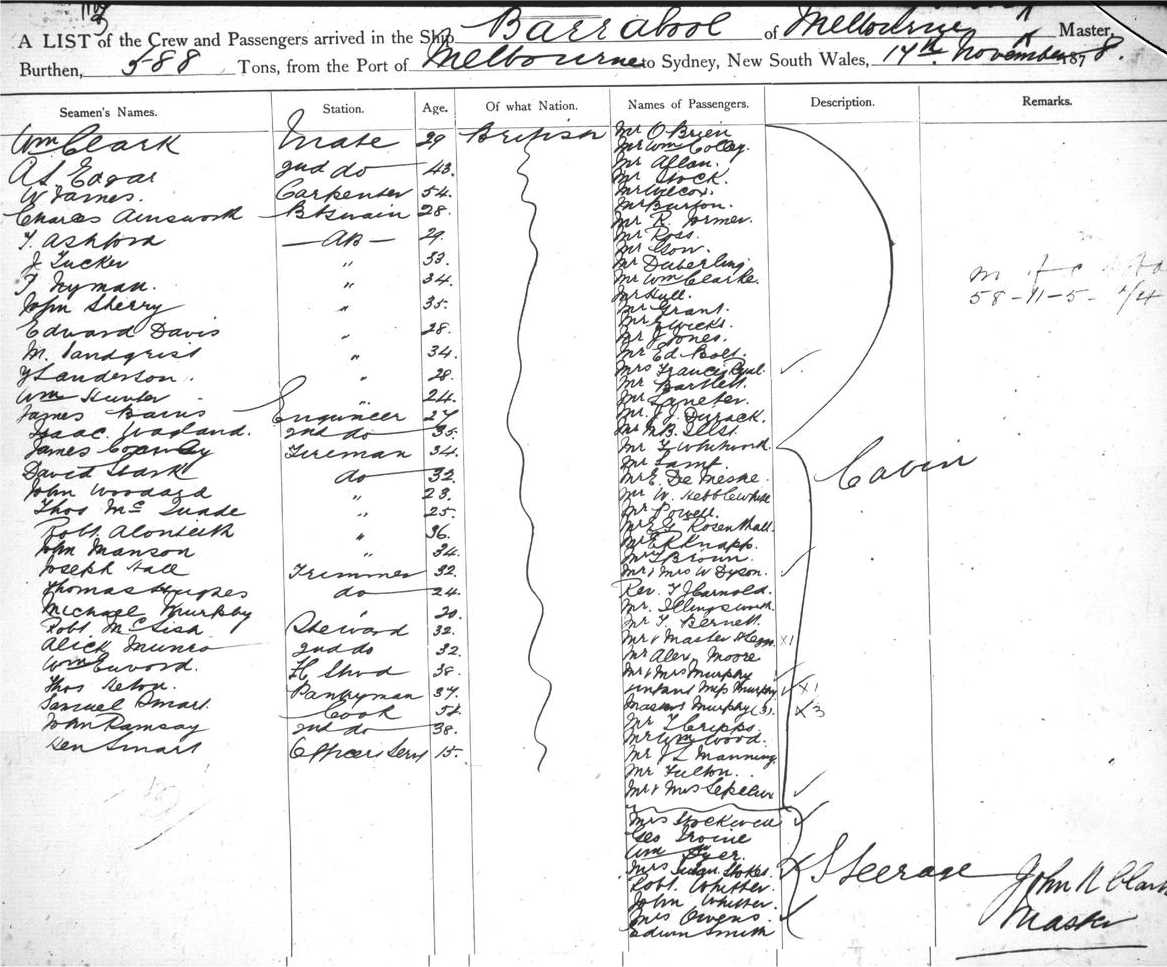 A LIST of the Crew and Passengers arrived in the Ship Barrabool of Melbourne Master,
Burthen, 588 Tons, from the Port of Melbourne to Sydney, New South Wales, 14th November 1878.
Seamen's Names. Station. Age. Of what Nation. Names of Passengers. Description. Remarks.
Wm Clark Mate 29 British
A S Edgar 2nd do 43.
W James. Carpenter 54.
Charles Ainsworth Btswain 28.
T. Ashford — AB — 29.
J Tucker " 33.
T Nyman. " 34.
John Sherry " 35.
Edward Davis " 28.
M. Sandgrist " 34.
" 28.
Wm Hunter " 24.
James Bains Engineer 27
Isaac. 2nd do 35.
James Fireman 34.
David Stark do 32.
John Woodard " 23.
Thos Mc Quade " 25.
Robt. " 36.
John Manson " 34.
Joseph Hall Trimmer 32.
Thomas Hughes do 24.
Michael Murphy " 20.
Robt McLish Steward 32.
Alick Munro 2nd do 32.
Wm H Stwd 38.
Thos Pantryman 37.
Samuel Smart. Cook 52.
John Ramsay 2nd do 38.
Ken Smart Officers Serv 15.
Mr O'Brien
Mr Wm Colley.
Mr Allan.
Mr Stock.
Mr Wilcox.
Mr Burton.
Mr R.
Mr Ross.
Mr Gow.
Mr Daberling
Mr Wm Clarke.
Mr Hull.
Mr Grant.
Mr E Wicks.
Mr J Jones.
Mr Ed Bolt.
Mrs Francis
Mr Bartlett.
Mr
Mr J J Durack.
Mr
Mr Whitwood.
Mr Lamp.
Mr E. De Meske.
Mr W. Kebblewhite
Mr Powell.
Mr Rosenthall.
Mr E R Knapp.
Mr Brown.
Mr & Mrs W Dyson.
Rev. T J
Mr. Illingsworth.
Mr T. Bernett.
Mr & Master X1
Mr Alex Moore
Mr & Mrs Murphy
infant Miss Murphy X1
Masters Murphy (3). X3
Mr T Cripps.
Mr Wm Wood.
Mr J L Manning.
Mr Fulton.
Mr & Mrs
Cabin
Mrs Stockwell
Geo Irvine
Wm Dyer.
Mrs Susan Stokes.
Robt Whitter.
John Whitter.
Mrs Owens.
Edwin Smith
Steerage
58-11-5-
John R Clark
Master